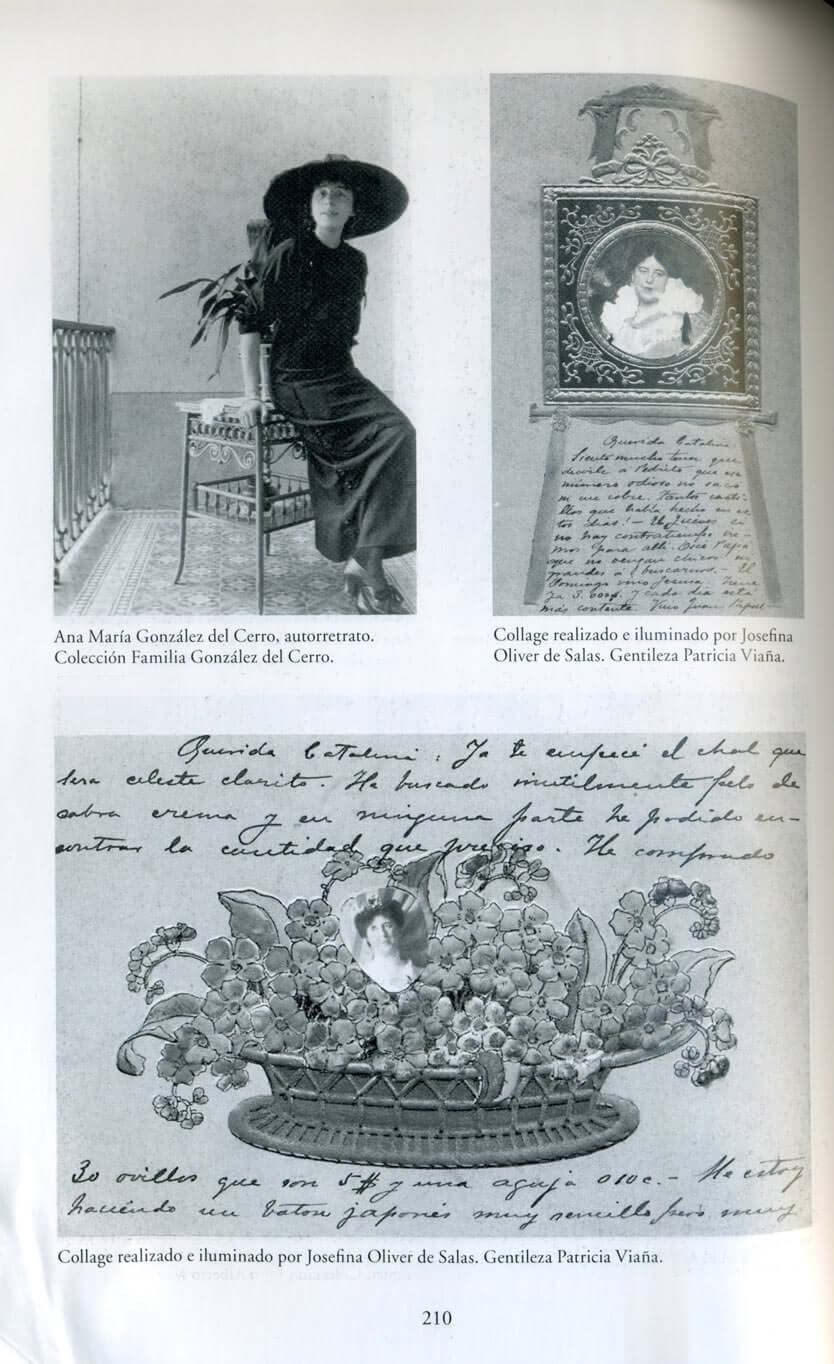 Querida Catalina:
Siento mucho tener que
decirle a Pedrito que ese
número odioso no saco
ni un cobre. Tantos casti-
llos que había hecho en es-
tos días! - El Jueves si
no hay contratiempo ire-
mos para allí. Dice Papá
que no vengan chicos ni
grandes a buscarnos. - El
Domingo vino
ya 3.600 y cada día está
más contenta. Vino Juan
Ana María González del Cerro, autorretrato.
Colección Familia González del Cerro.
Collage realizado e iluminado por Josefina
Oliver de Salas. Gentileza Patricia Viaña.
Querida Catalina: Ya te empecé el chal que
sera celeste clarito. He buscado inutilmente pelo de
cabra crema y en ninguna parte he podido en-
contrar la cantidad que preciso. He comprado
30 ovillos que son 5$ y una aguja 0 10c. - Me estoy
haciendo un baton japonés muy sencillo pero muy
Collage realizado e iluminado por Josefina Oliver de Salas. Gentileza Patricia Viaña.
210